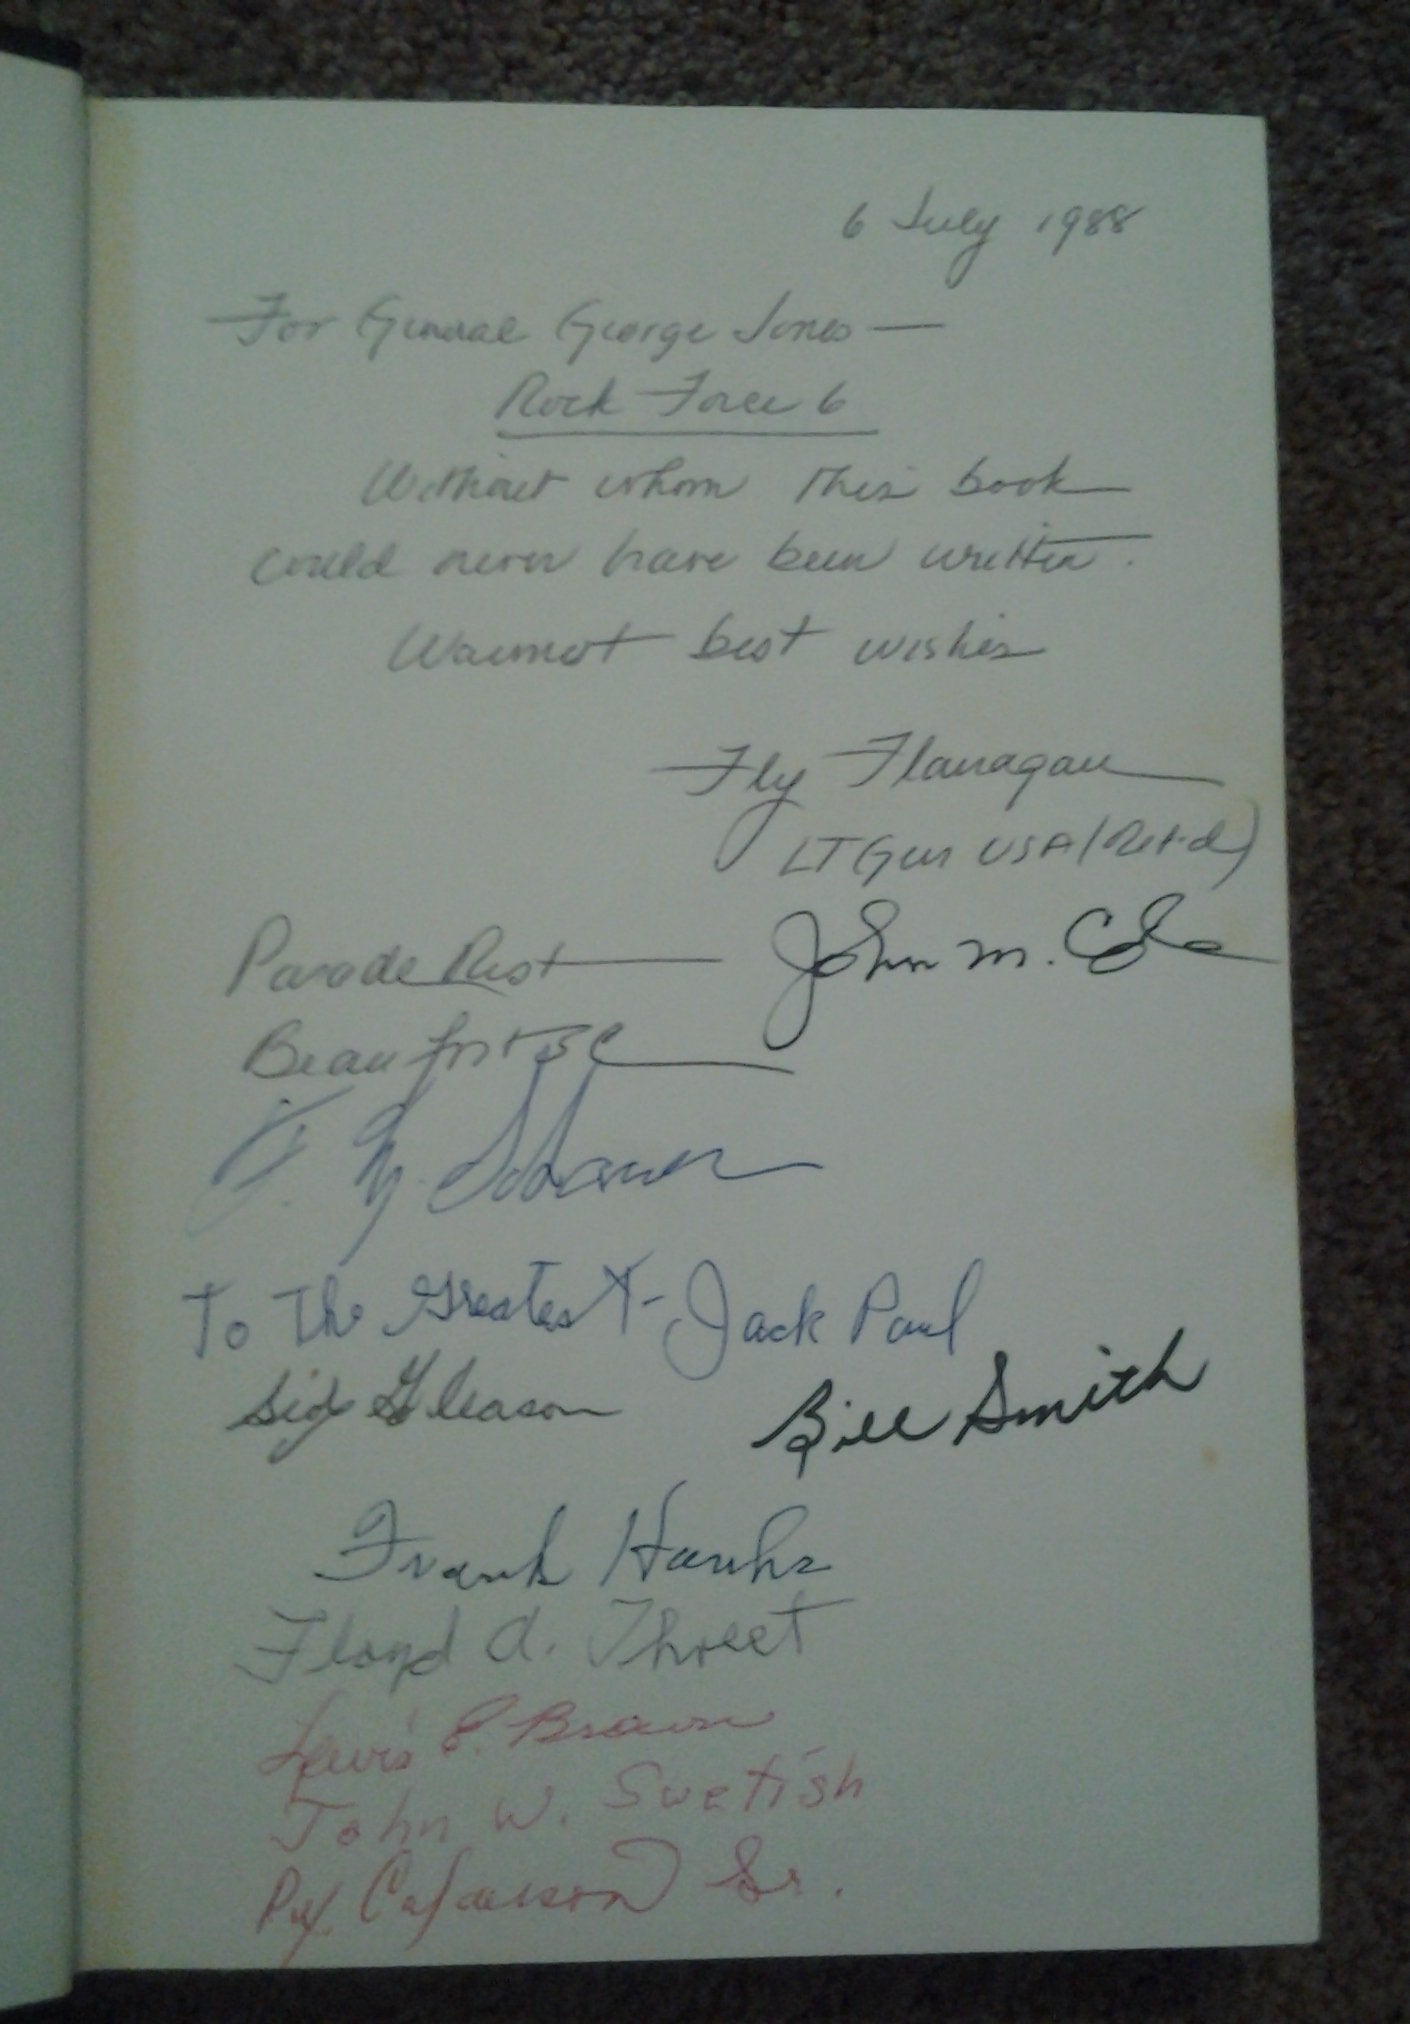 6 July 1988
For General George Jones —
Rock Force 6
Without whom this book
could never have been written.
Warmest best wishes
Fly Flanagan
LT Gen USA (Ret-d)
Parade Rest
John M. Cole
Beaufort SC
To The Greatest - Jack Paul
Sid Gleason
Bill Smith
Frank Hanks
Floyd A. Threet
Lewis E. Brown
John W. Swetish
Sr.